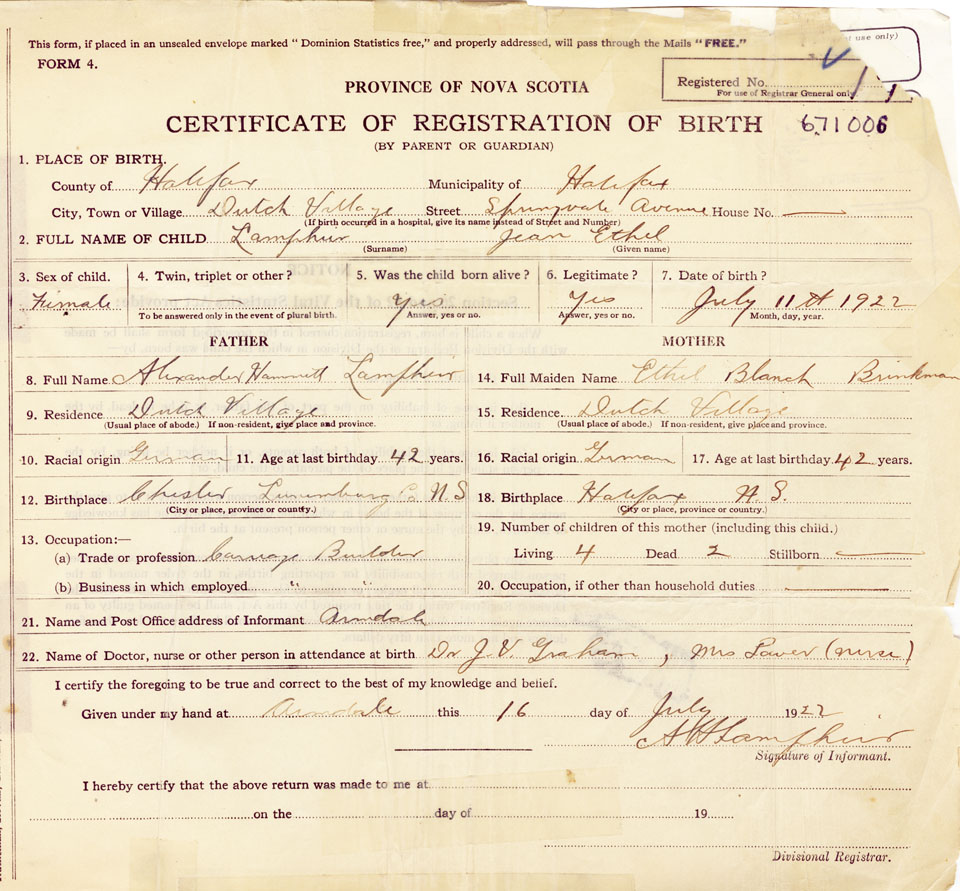 This form, if placed in an unsealed envelope marked "Dominion Statistics free," and properly addressed, will pass through the Mails "FREE."
use only)
FORM 4.
PROVINCE OF NOVA SCOTIA
Registered No.
For use of Registrar General only.
CERTIFICATE OF REGISTRATION OF BIRTH 671006
(BY PARENT OR GUARDIAN)
1. PLACE OF BIRTH.
County of Halifax Municipality of Halifax
City, Town or Village Dutch Village Street Springvale Avenue House No. —
(If birth occurred in a hospital, give its name instead of Street and Number)
2. FULL NAME OF CHILD Lamphier Jean Ethel
(Surname) (Given name)
3. Sex of child. 4. Twin, triplet or other? 5. Was the child born alive? 6. Legitimate? 7. Date of birth?
Female — Yes Yes July 11th 1922
To be answered only in the event of plural birth. Answer, yes or no. Answer, yes or no. Month, day, year.
FATHER MOTHER
8. Full Name Alexander Hammett Lamphier 14. Full Maiden Name Ethel Blanch Brinkman
9. Residence Dutch Village 15. Residence. Dutch Village
(Usual place of abode.) If non-resident, give place and province. (Usual place of abode.) If non-resident, give place and province.
10. Racial origin German 11. Age at last birthday 42 years. 16. Racial origin German 17. Age at last birthday 42 years.
12. Birthplace Chester Lunenburg Co N S 18. Birthplace Halifax N. S.
(City or place, province or country.) (City or place, province or country.)
13. Occupation:— 19. Number of children of this mother (including this child.)
(a) Trade or profession Carriage Builder Living 4 Dead 2 Stillborn —
(b) Business in which employed " " 20. Occupation, if other than household duties —
21. Name and Post Office address of Informant Armdale
22. Name of Doctor, nurse or other person in attendance at birth Dr J. V. Graham, Mrs (nurse)
I certify the foregoing to be true and correct to the best of my knowledge and belief.
Given under my hand at Armdale this 16 day of July 1922
A H Lamphier
Signature of Informant.
I hereby certify that the above return was made to me at
on the day of 19
Divisional Registrar.